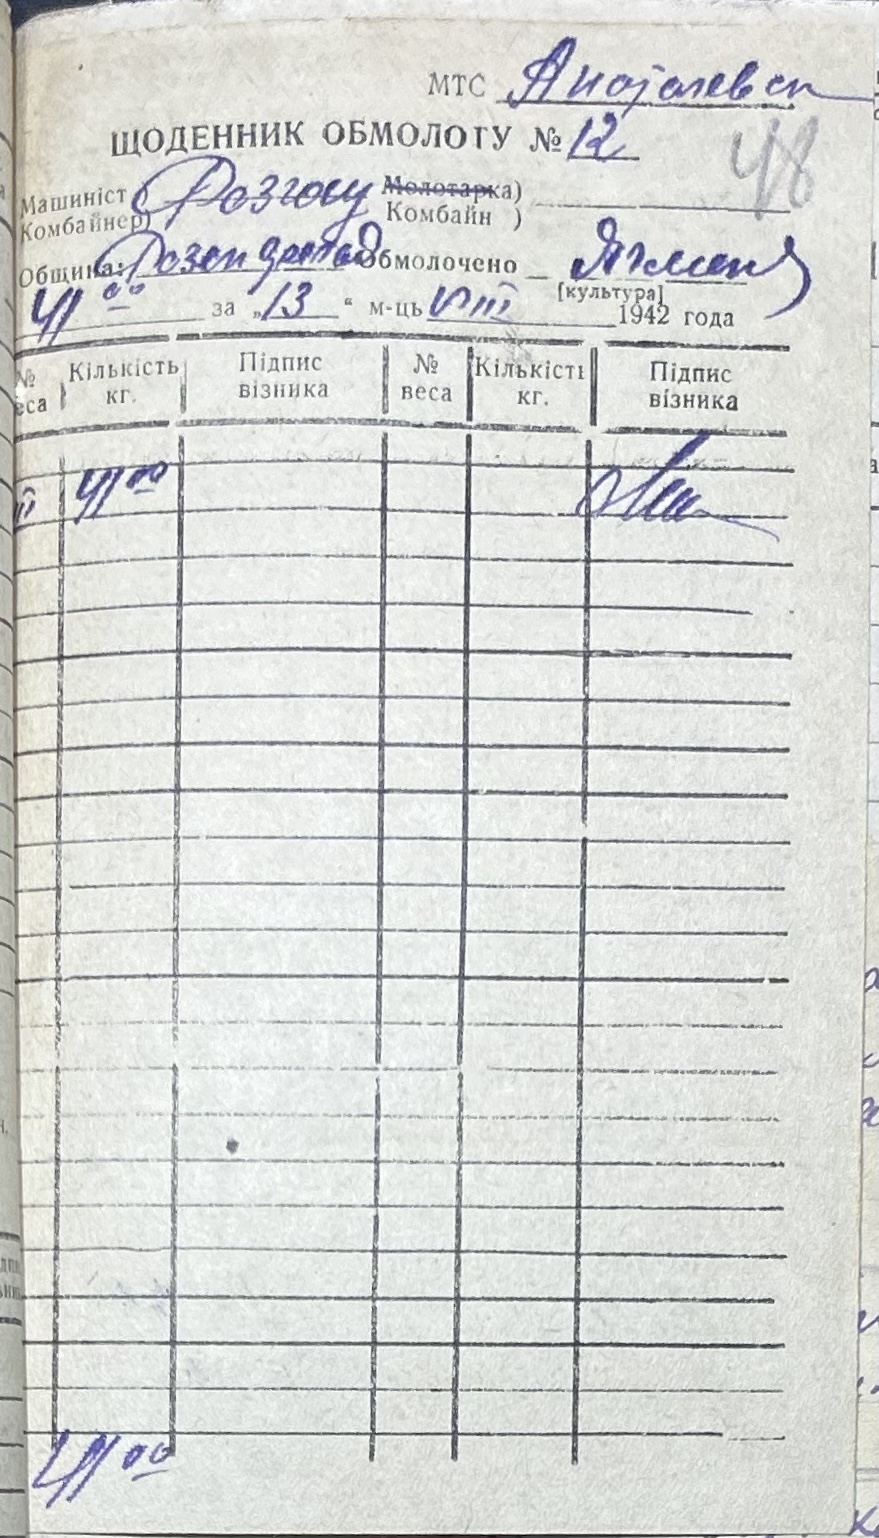 МТС
ЩОДЕННИК ОБМОЛОТУ № 12
48
Машиніст Молотарка)
Комбайнер) Комбайн )
Община: Обмолочено Ячмень
[культура]
41 00 за „13“ м-ць VIII 1942 года
№ веса Кількість кг. Підпис візника № веса Кількість кг. Підпис візника
41 00
41 00